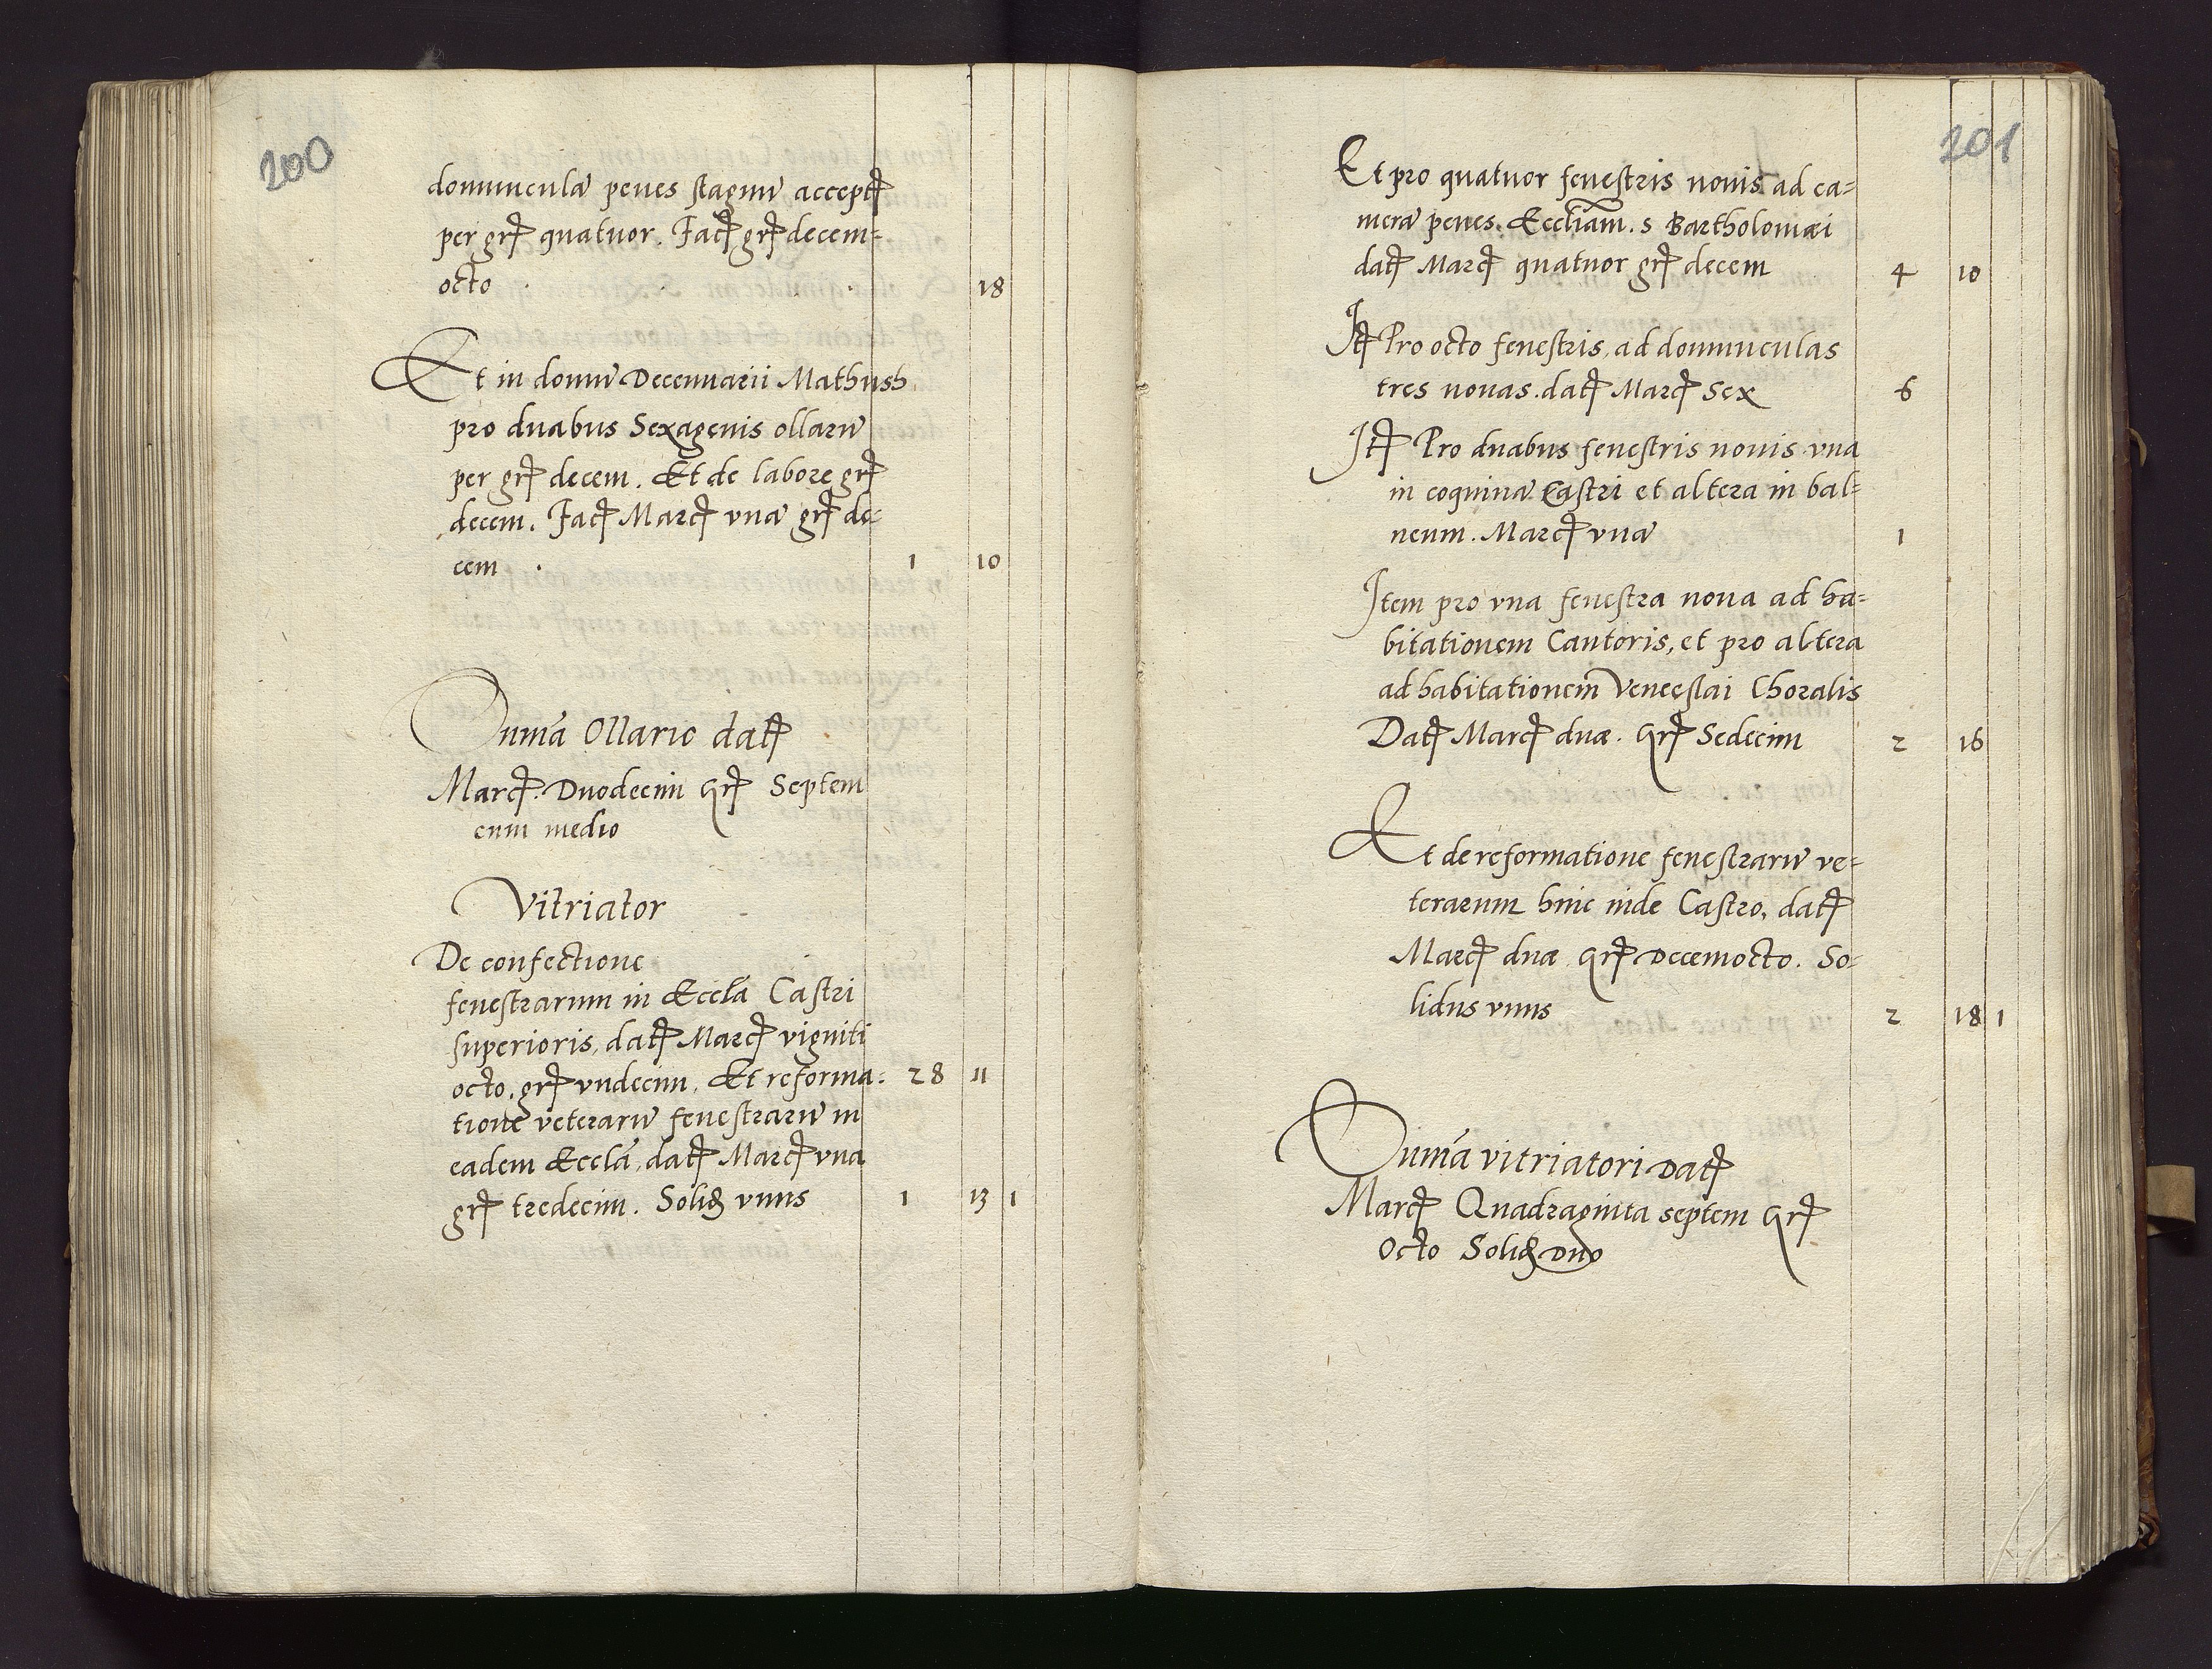 200
domuncula penes stagnu accept
per gr quatuor. Fac gr decem=
octo 18
Et in domu Decennarii Mathush
pro duabus Sexagenis ollaru
per gr decem. Et de labore gr
decem. Fac Marc vna gr de=
cem 1 10
Suma Ollario dat
Marc. Duodecim Gr Septem
cum medio
Vitriator
De confectione
fenestrarum in Eccla Castri
superioris, dat Marc vigniti
octo. gr vndecim. Et reforma= 28 11
tione veteraru fenestraru in
eadem Eccla, dat Marc vna
gr tredecim. Solid vnus 1 13 1
201
Et pro quatuor fenestris nouis ad ca=
mera penes Eccliam. s Bartholomæi
dat Marc quatuor gr decem 4 10
It Pro octo fenestris, ad domunculas
tres nouas. dat Marc Sex 6
It Pro duabus fenestris nouis vna
in coquina Castri et altera in bal=
neum. Marc vna 1
Item pro vna fenestra noua ad ha=
bitationem Cantoris, et pro altera
ad habitationem Venceslai Choralis
Dat Marc duæ. Gr Sedecim 2 16
Et de reformatione fenestraru ve=
terarum hinc inde Castro, dat
Marc duæ Gr Decemocto. So=
lidus vnus 2 18 1
Suma vitriatori Dat
Marc Quadraginta septem Gr
Octo Solid Duo